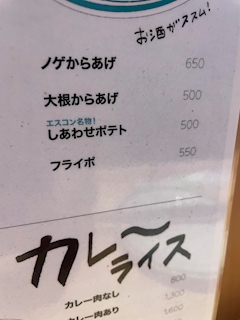 お酒がススム!
ノゲからあげ 650
大根からあげ 500
エスコン名物!
しあわせポテト 500
フライポ 550
カレーライス
800
カレー肉なし 1,300
カレー肉あり 1,600